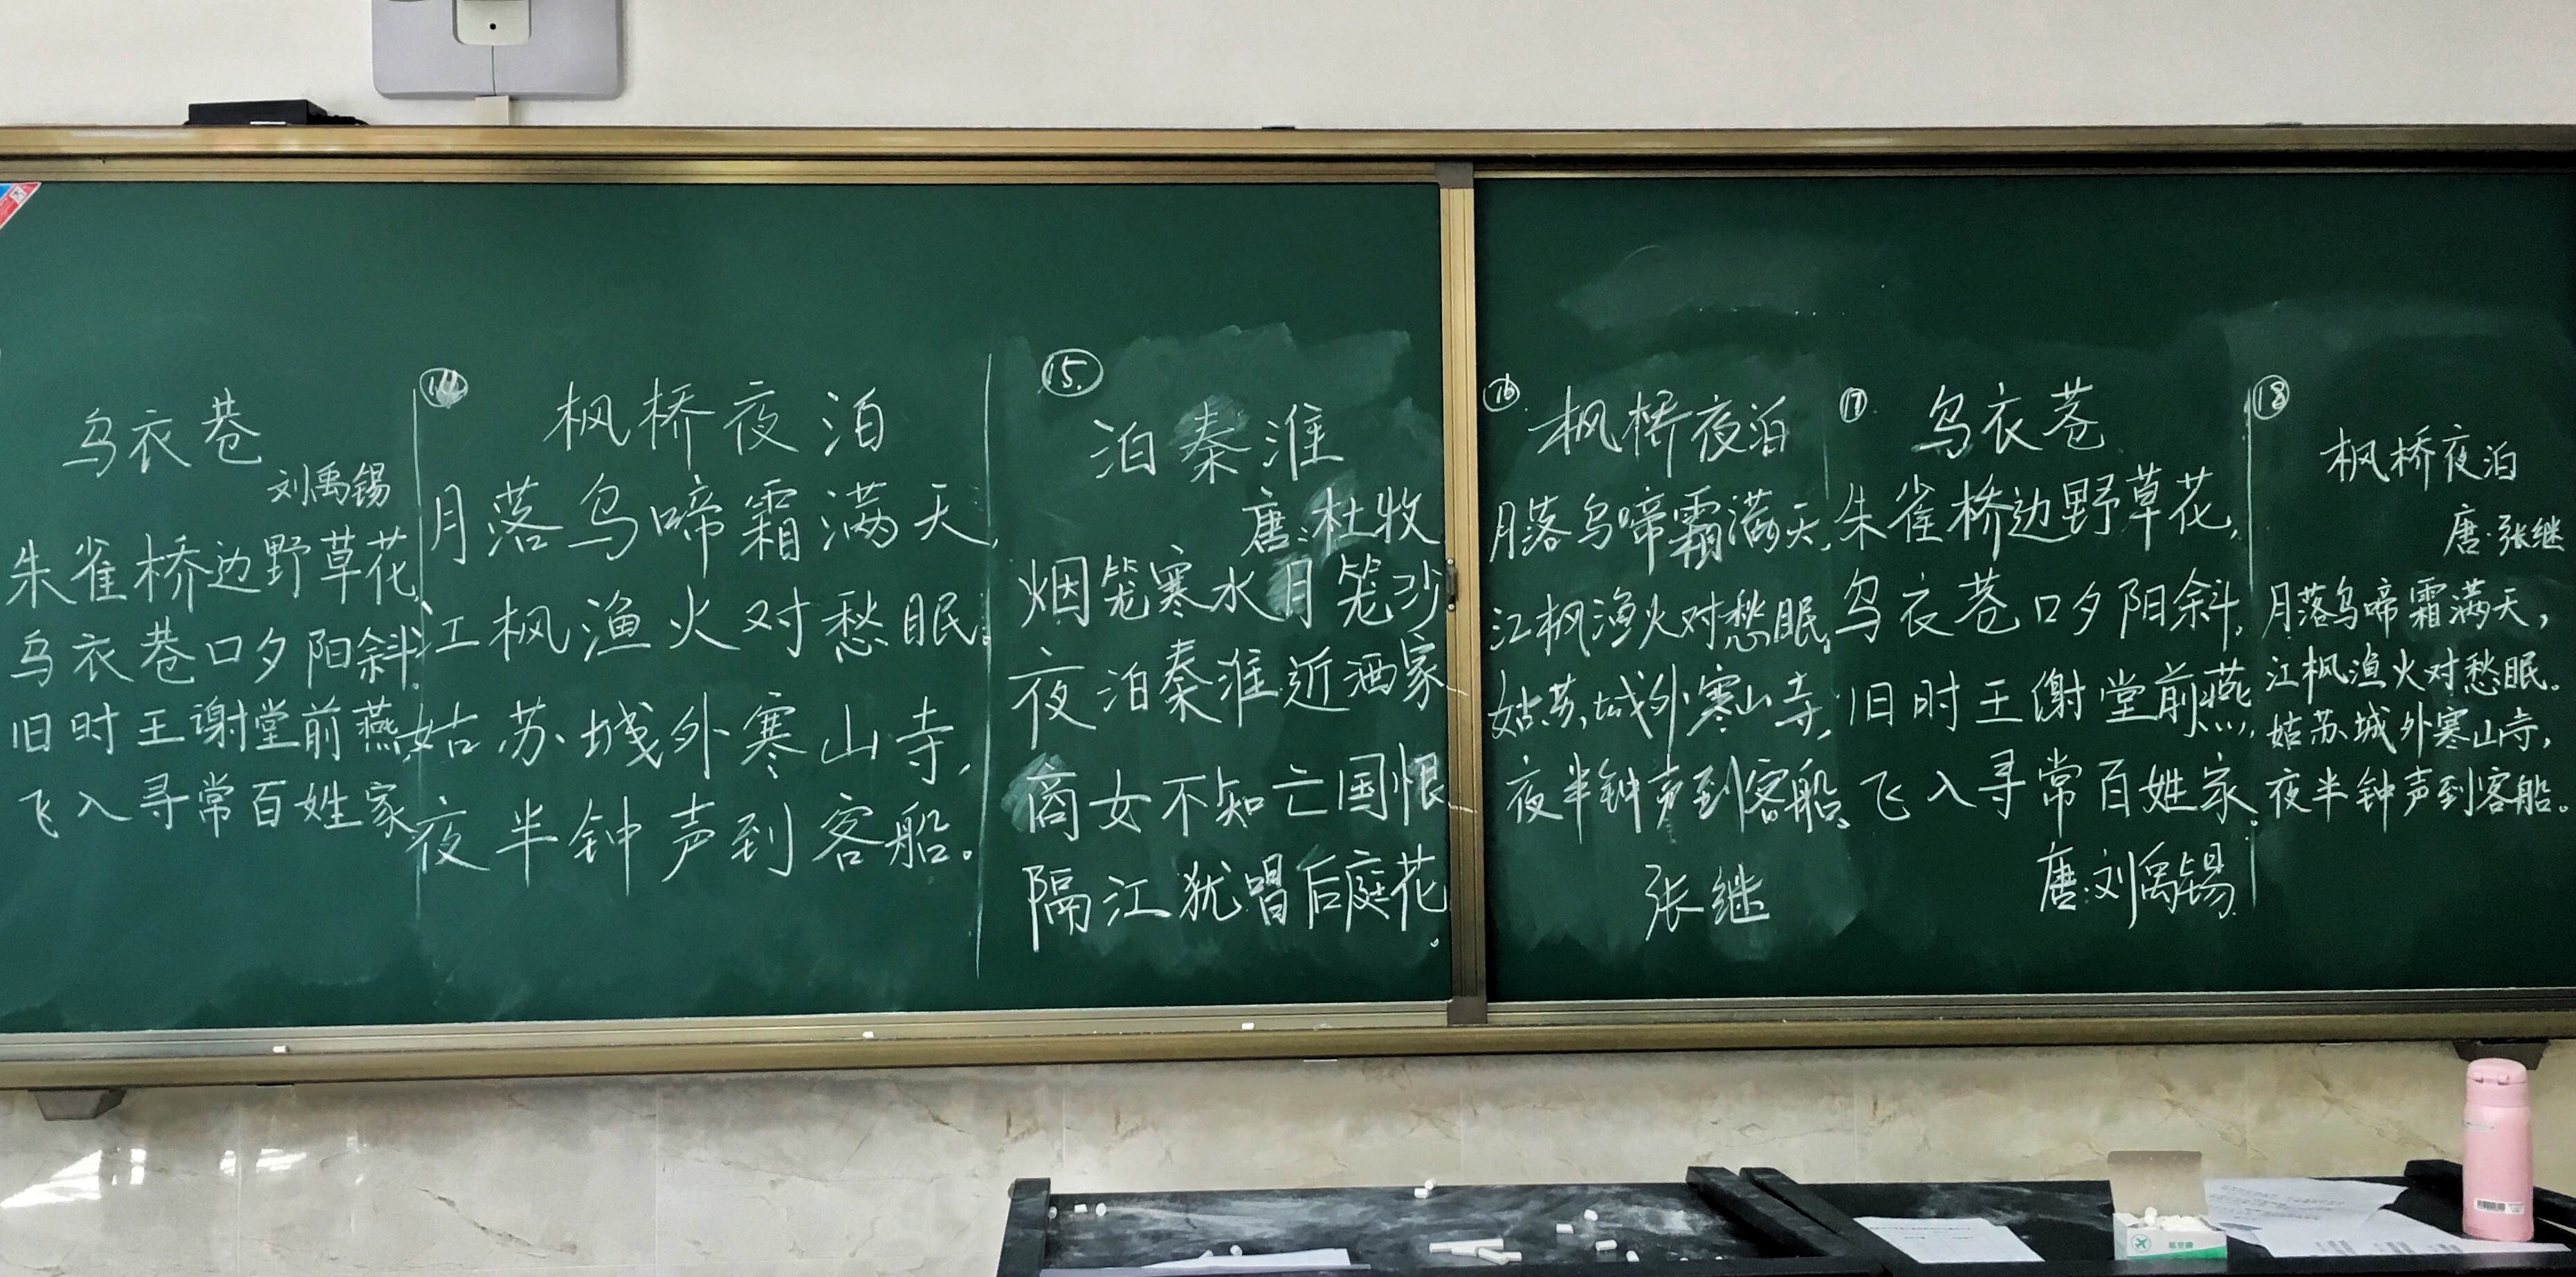 乌衣巷
刘禹锡
朱雀桥边野草花,
乌衣巷口夕阳斜.
旧时王谢堂前燕,
飞入寻常百姓家.
⑭
枫桥夜泊
月落乌啼霜满天,
江枫渔火对愁眠.
姑苏城外寒山寺,
夜半钟声到客船。
⑮
泊秦淮
唐:杜牧
烟笼寒水月笼沙
夜泊秦淮近酒家
商女不知亡国恨
隔江犹唱后庭花.
⑯
枫桥夜泊
月落乌啼霜满天,
江枫渔火对愁眠。
姑苏城外寒山寺,
夜半钟声到客船。
张继
⑰
乌衣巷
朱雀桥边野草花,
乌衣巷口夕阳斜,
旧时王谢堂前燕,
飞入寻常百姓家。
唐:刘禹锡
⑱
枫桥夜泊
唐·张继
月落乌啼霜满天,
江枫渔火对愁眠。
姑苏城外寒山寺,
夜半钟声到客船。